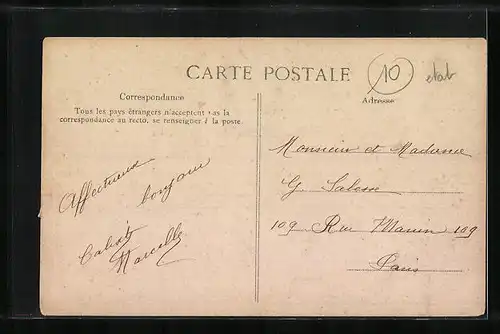 CARTE POSTALE
10
etat
Correspondance
Adresse
Tous les pays étrangers n'acceptent pas la
correspondance au recto, se renseigner à la poste.
Affectueux
bonjour
Marcelle
Monsieur et Madame
G.
109 Rue Manin 109
Paris